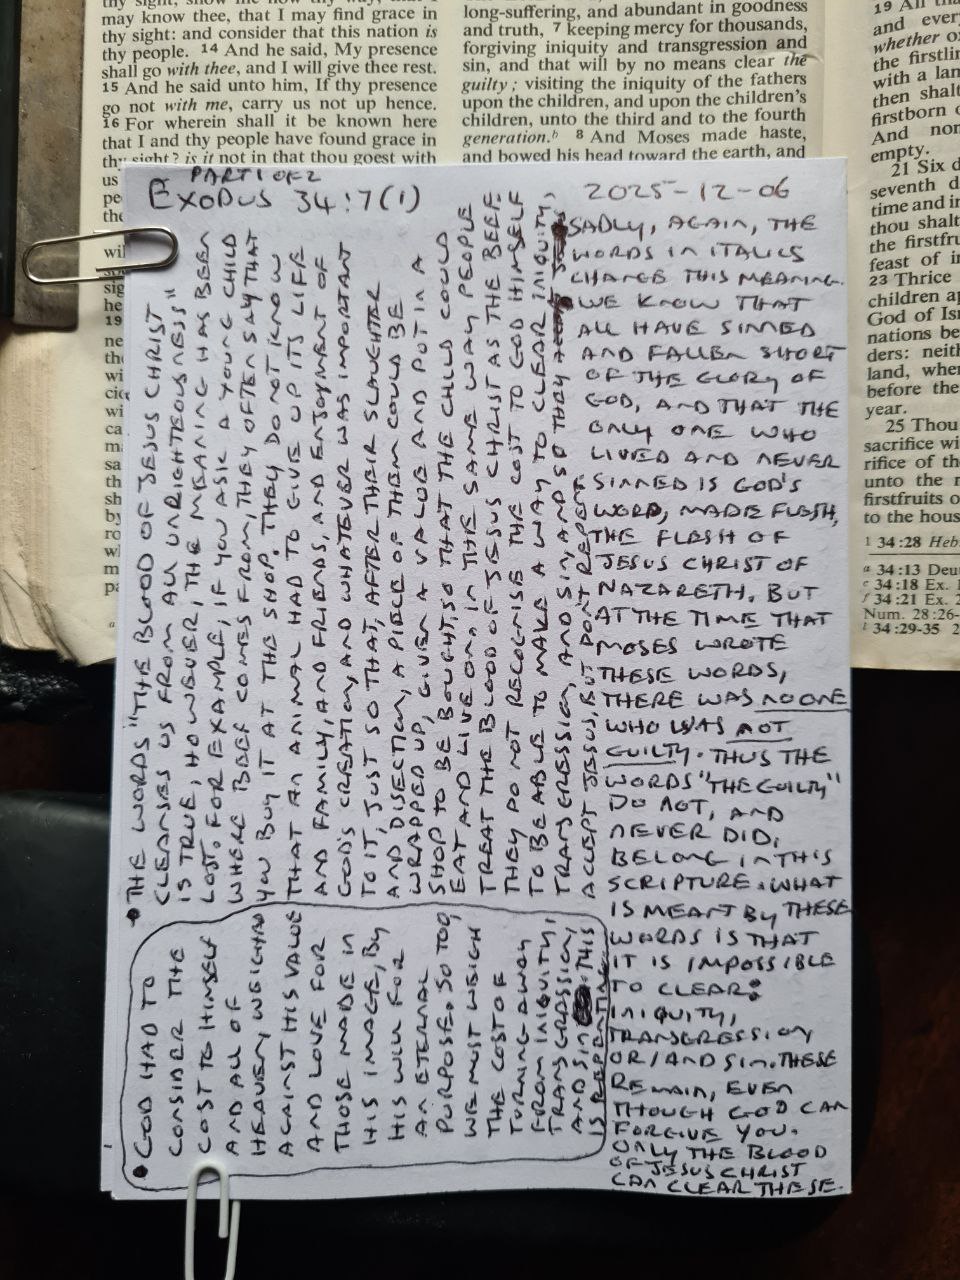 thy sight, show me now thy way, that I
may know thee, that I may find grace in
thy sight: and consider that this nation is
thy people. 14 And he said, My presence
shall go with thee, and I will give thee rest.
15 And he said unto him, If thy presence
go not with me, carry us not up hence.
16 For wherein shall it be known here
that I and thy people have found grace in
thy sight? is it not in that thou goest with
us
pe
the
wil
sig
he
19
ne
the
wi
wi
ca
ma
sa
th
sh
by
ro
w
m
pa
long-suffering, and abundant in goodness
and truth, 7 keeping mercy for thousands,
forgiving iniquity and transgression and
sin, and that will by no means clear the
guilty; visiting the iniquity of the fathers
upon the children, and upon the children's
children, unto the third and to the fourth
generation.h 8 And Moses made haste,
and bowed his head toward the earth, and
19 All
and ever
whether o
the firstlin
with a lam
then shalt
firstborn o
And non
empty.
21 Six d
seventh d
time and in
thou shalt
the firstfru
feast of in
23 Thrice
children ap
God of Isr
nations be
ders: neith
land, when
before the
year.
25 Thou
sacrifice wi
rifice of the
unto the m
firstfruits o
to the hous
1 34:28 Heb
a 34:13 Deu
c 34:18 Ex.
f 34:21 Ex. 2
Num. 28:26-
l 34:29-35 2
PART 1 OF 2
EXODUS 34:7(1)
2025-12-06
• THE WORDS "THE BLOOD OF JESUS CHRIST
CLEANSES US FROM ALL UNRIGHTEOUSNESS"
IS TRUE, HOWEVER, THE MEANING HAS BEEN
LOST. FOR EXAMPLE, IF YOU ASK A YOUNG CHILD
WHERE BEEF COMES FROM, THEY OFTEN SAY THAT
YOU BUY IT AT THE SHOP. THEY DO NOT KNOW
THAT AN ANIMAL HAD TO GIVE UP ITS LIFE
AND FAMILY, AND FRIENDS, AND ENJOYMENT OF
GOD'S CREATION, AND WHATEVER WAS IMPORTANT
TO IT, JUST SO THAT, AFTER THEIR SLAUGHTER
AND DISECTION, A PIECE OF THEM COULD BE
WRAPPED UP, GIVEN A VALUE AND PUT IN A
SHOP TO BE BOUGHT, SO THAT THE CHILD COULD
EAT AND LIVE ON. IN THE SAME WAY PEOPLE
TREAT THE BLOOD OF JESUS CHRIST AS THE BEEF.
THEY DO NOT RECOGNISE THE COST TO GOD HIMSELF
TO BE ABLE TO MAKE A WAY TO CLEAR INIQUITY,
TRANSGRESSION, AND SIN, AND SO THEY
ACCEPT JESUS, BUT DON'T REPENT
• GOD HAD TO
CONSIDER THE
COST TO HIMSELF
AND ALL OF
HEAVEN, WEIGHED
AGAINST HIS VALUE
AND LOVE FOR
THOSE MADE IN
HIS IMAGE, BY
HIS WILL FOR
AN ETERNAL
PURPOSE. SO TOO,
WE MUST WEIGH
THE COST OF
TURNING AWAY
FROM INIQUITY,
TRANSGRESSION,
AND SIN. THIS
IS REPENTING.
SADLY, AGAIN, THE
WORDS IN ITALICS
CHANGE THIS MEANING.
WE KNOW THAT
ALL HAVE SINNED
AND FALLEN SHORT
OF THE GLORY OF
GOD, AND THAT THE
ONLY ONE WHO
LIVED AND NEVER
SINNED IS GOD'S
WORD, MADE FLESH,
THE FLESH OF
JESUS CHRIST OF
NAZARETH. BUT
AT THE TIME THAT
MOSES WROTE
THESE WORDS,
THERE WAS NO ONE
WHO WAS NOT
GUILTY. THUS THE
WORDS "THE GUILTY"
DO NOT, AND
NEVER DID,
BELONG IN THIS
SCRIPTURE. WHAT
IS MEANT BY THESE
WORDS IS THAT
IT IS IMPOSSIBLE
TO CLEAR:
INIQUITY,
TRANSGRESSION
OR/AND SIN. THESE
REMAIN, EVEN
THOUGH GOD CAN
FORGIVE YOU.
ONLY THE BLOOD
OF JESUS CHRIST
CAN CLEAR THESE.